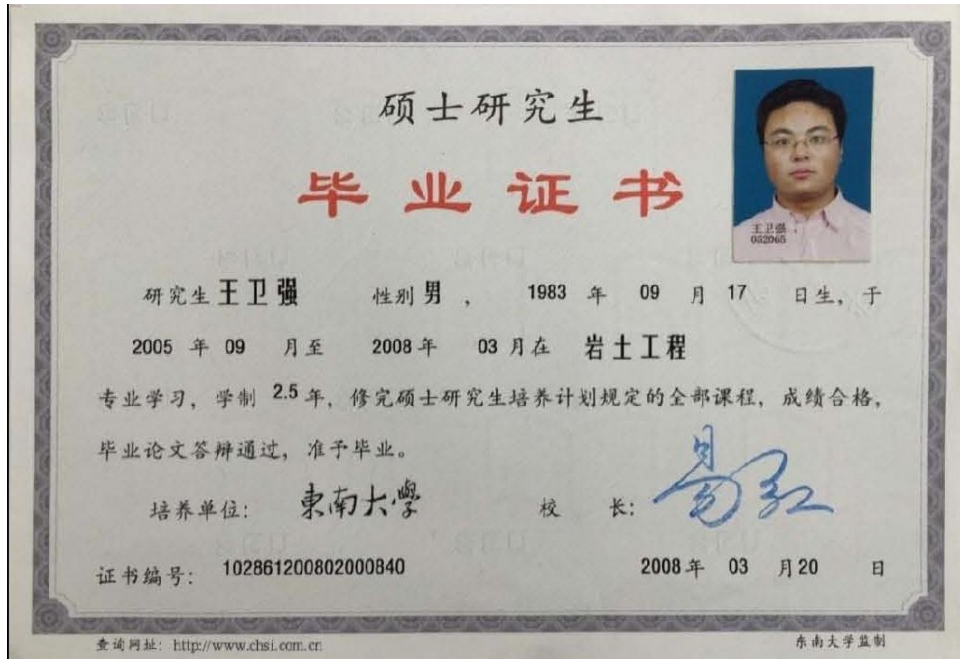 硕士研究生
毕业证书
王卫强
052065
研究生 王卫强 性别 男 , 1983 年 09 月 17 日生, 于
2005 年 09 月至 2008 年 03 月在 岩土工程
专业学习, 学制 2.5 年, 修完硕士研究生培养计划规定的全部课程, 成绩合格,
毕业论文答辩通过, 准予毕业。
培养单位: 東南大學 校 长: 易红
证书编号: 102861200802000840 2008 年 03 月 20 日
查询网址: http://www.chsi.com.cn 东南大学监制